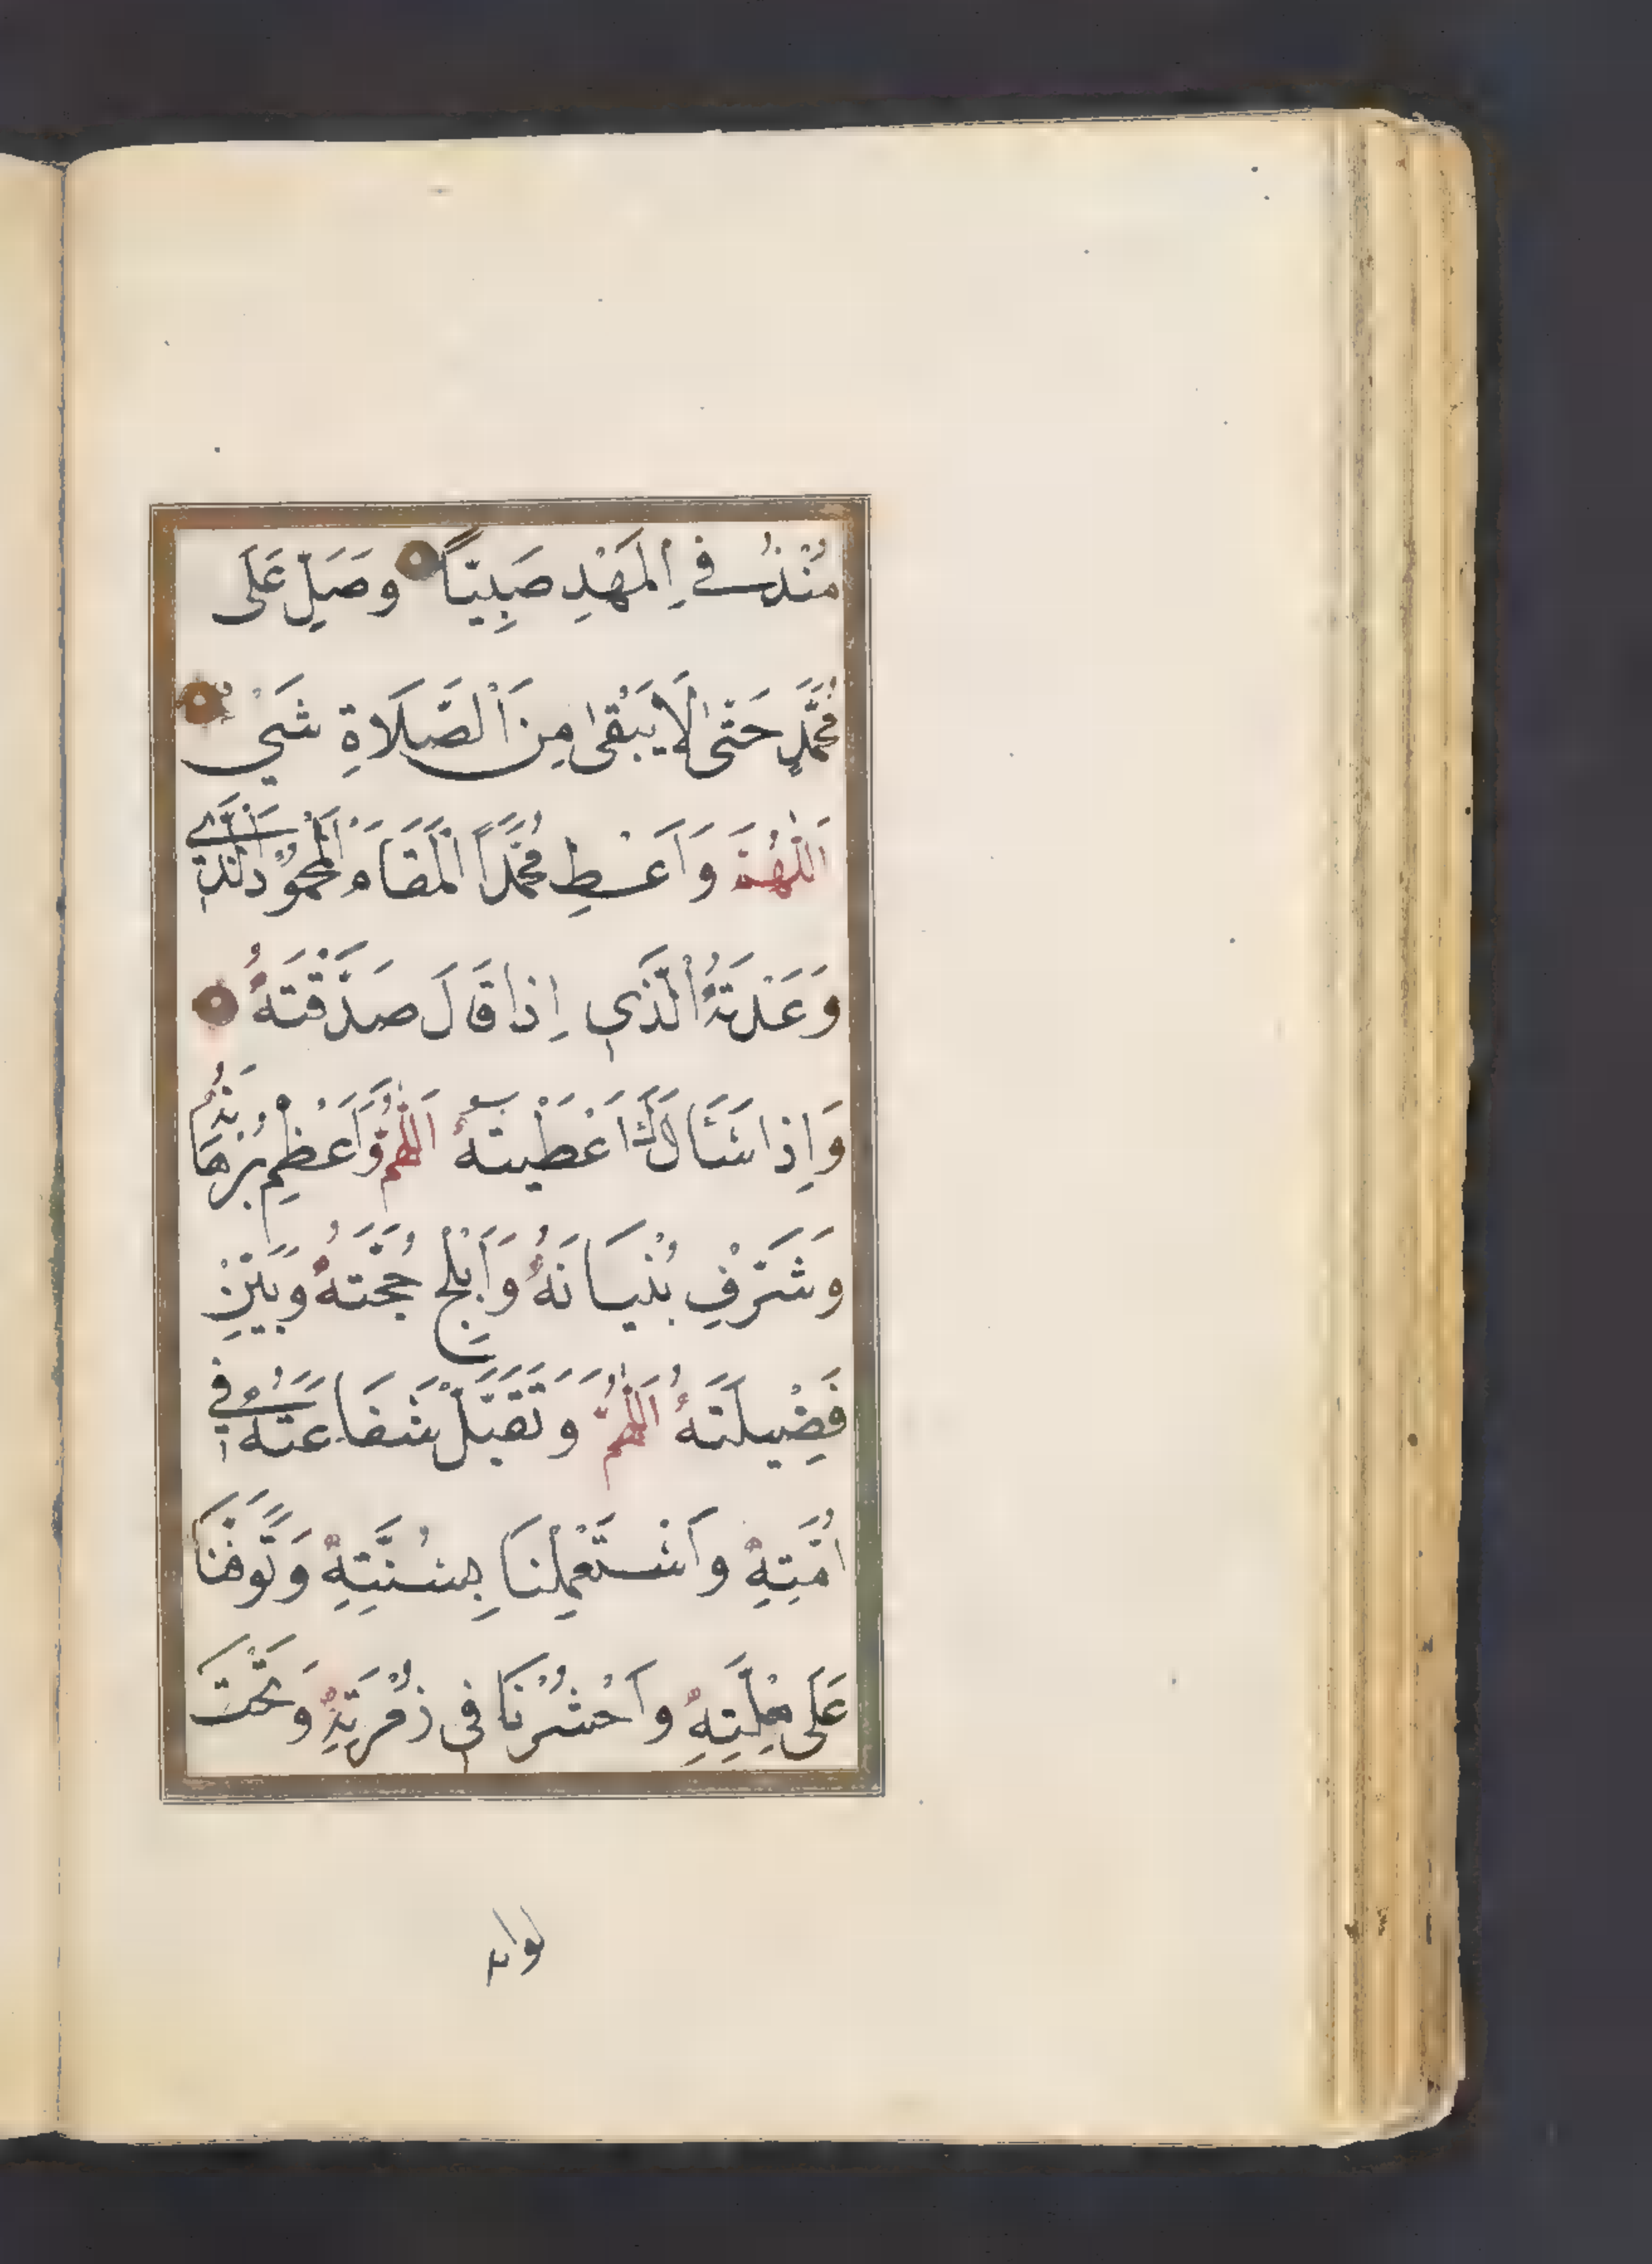 مُنْذُ فِي الْمَهْدِ صَبِيًّا وَصَلِّ عَلَى
مُحَمَّدٍ حَتَّى لَا يَبْقَى مِنَ الصَّلَاةِ شَيْءٌ
اَللّٰهُمَّ وَاَعْطِ مُحَمَّدًا الْمَقَامَ الْمَحْمُودَ الَّذِي
وَعَدْتَهُ الَّذِي اِذَا قَالَ صَدَّقْتَهُ
وَاِذَا سَئَالَكَ اَعْطَيْتَهُ اَللّٰهُمَّ وَاَعْظِمْ بُرْهَانَهُ
وَشَرِّفْ بُنْيَانَهُ وَاَبْلِجْ حُجَّتَهُ وَبَيِّنْ
فَضِيلَتَهُ اَللّٰهُمَّ وَتَقَبَّلْ شَفَاعَتَهُ فِي
اُمَّتِهِ وَاسْتَعْمِلْنَا بِسُنَّتِهِ وَتَوَفَّنَا
عَلَى مِلَّتِهِ وَاحْشُرْنَا فِي زُمْرَتِهِ وَتَحْتَ
لوائه